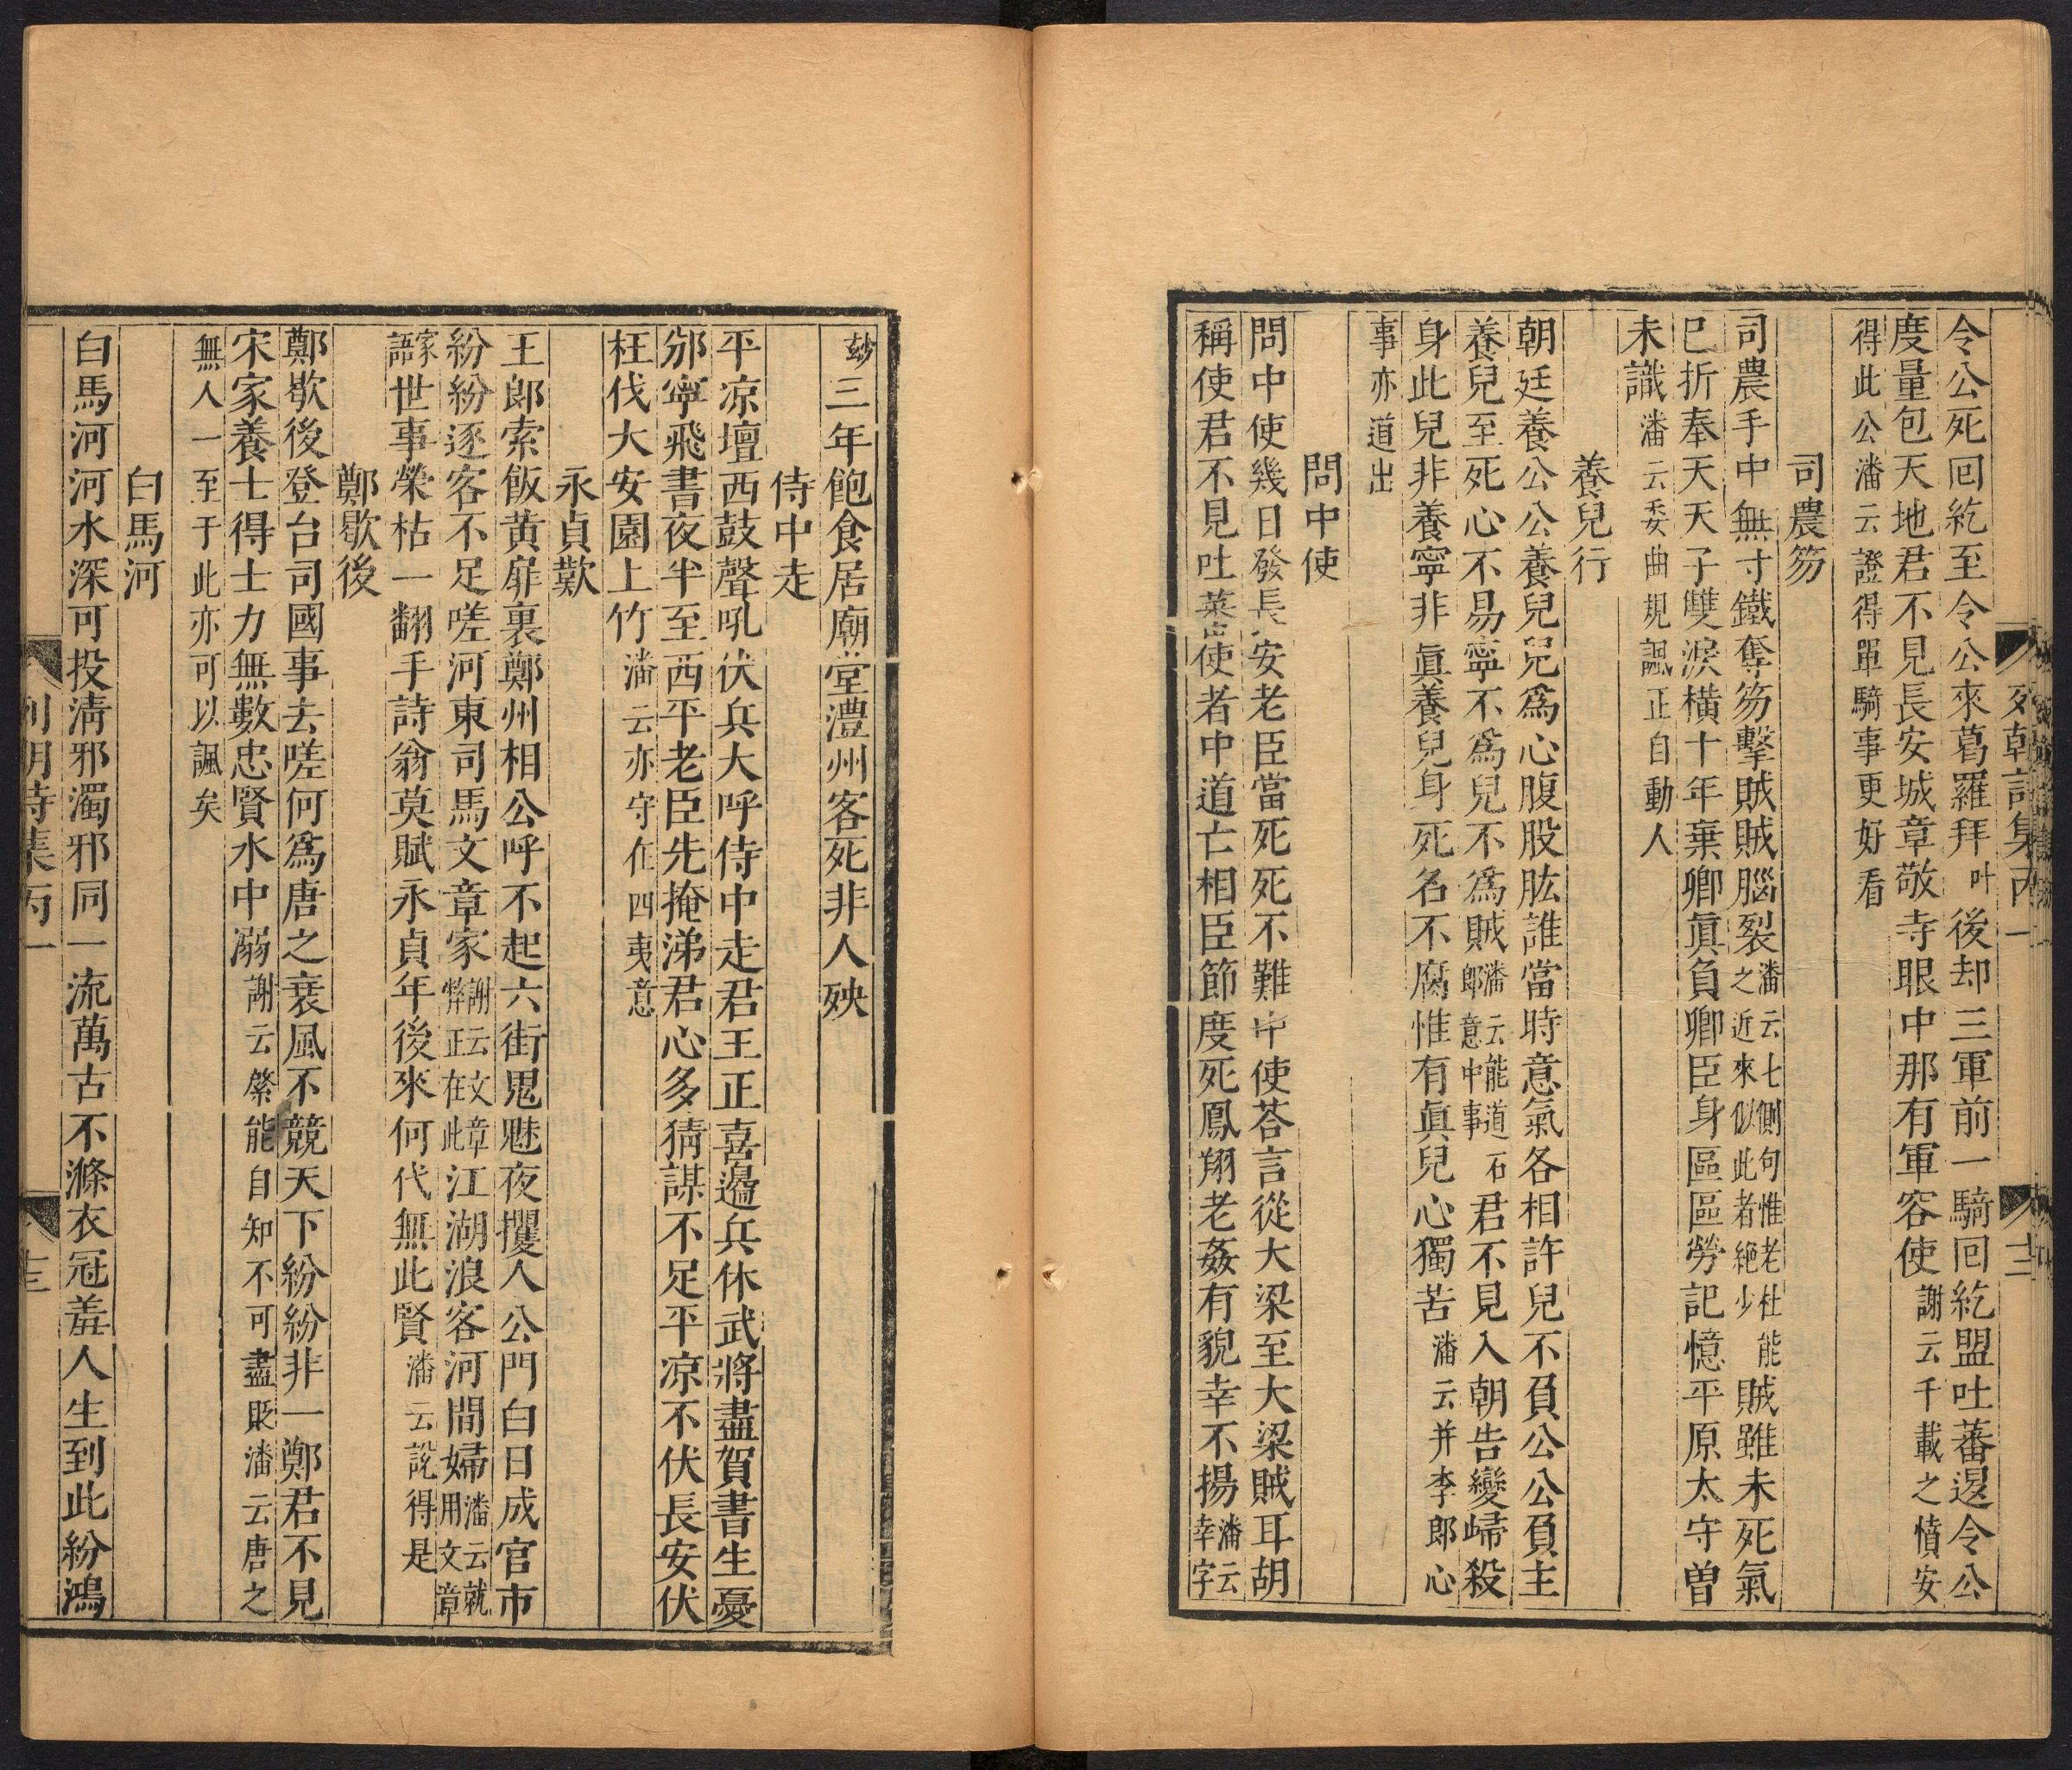 令公死回紇至令公來葛羅拜叶後却三軍前一騎回紇盟吐蕃遏令公
度量包天地君不見長安城章敬寺眼中那有軍容使謝云千載之憤安
得此公潘云證得單騎事更好看
司農笏
司農手中無寸鐵奪笏擊賊賊腦裂潘云七側句惟老杜能之近來似此者絶少賊雖未死氣
已折奉天天子雙淚橫十年棄卿眞負卿臣身區區勞記憶平原太守曾
未識潘云委曲規諷正自動人
養兒行
朝廷養公公養兒兒爲心腹股肱誰當時意氣各相許兒不負公公負主
養兒至死心不易寧不爲兒不爲賊潘云能道石郎意中事君不見入朝告變歸殺
身此兒非養寧非眞養兒身死名不腐惟有眞兒心獨苦潘云并李郎心
事亦道出
問中使
問中使幾日發長安老臣當死死不難中使荅言從大梁至大梁賊耳胡
稱使君不見吐蕃使者中道亡相臣節度死鳳翔老姦有貌幸不揚潘云幸字
玅三年飽食居廟堂澧州客死非人殃
侍中走
平凉壇西鼓聲吼伏兵大呼侍中走君王正喜邊兵休武將盡賀書生憂
邠寧飛書夜半至西平老臣先掩涕君心多猜謀不足平凉不伏長安伏
枉伐大安園上竹潘云亦守在四夷意
永貞歎
王郎索飯黄扉裏鄭州相公呼不起六街鬼魅夜攫人公門白日成官市
紛紛逐客不足嗟河東司馬文章家謝云文章弊正在此江湖浪客河間婦潘云就用文章
家語世事榮枯一翻手詩翁莫賦永貞年後來何代無此賢潘云説得是
鄭歇後
鄭歇後登台司國事去嗟何爲唐之衰風不競天下紛紛非一鄭君不見
宋家養士得士力無數忠賢水中溺謝云綮能自知不可盡貶潘云唐之
無人一至于此亦可以諷矣
白馬河
白馬河河水深可投淸邪濁邪同一流萬古不滌衣冠羞人生到此紛鴻